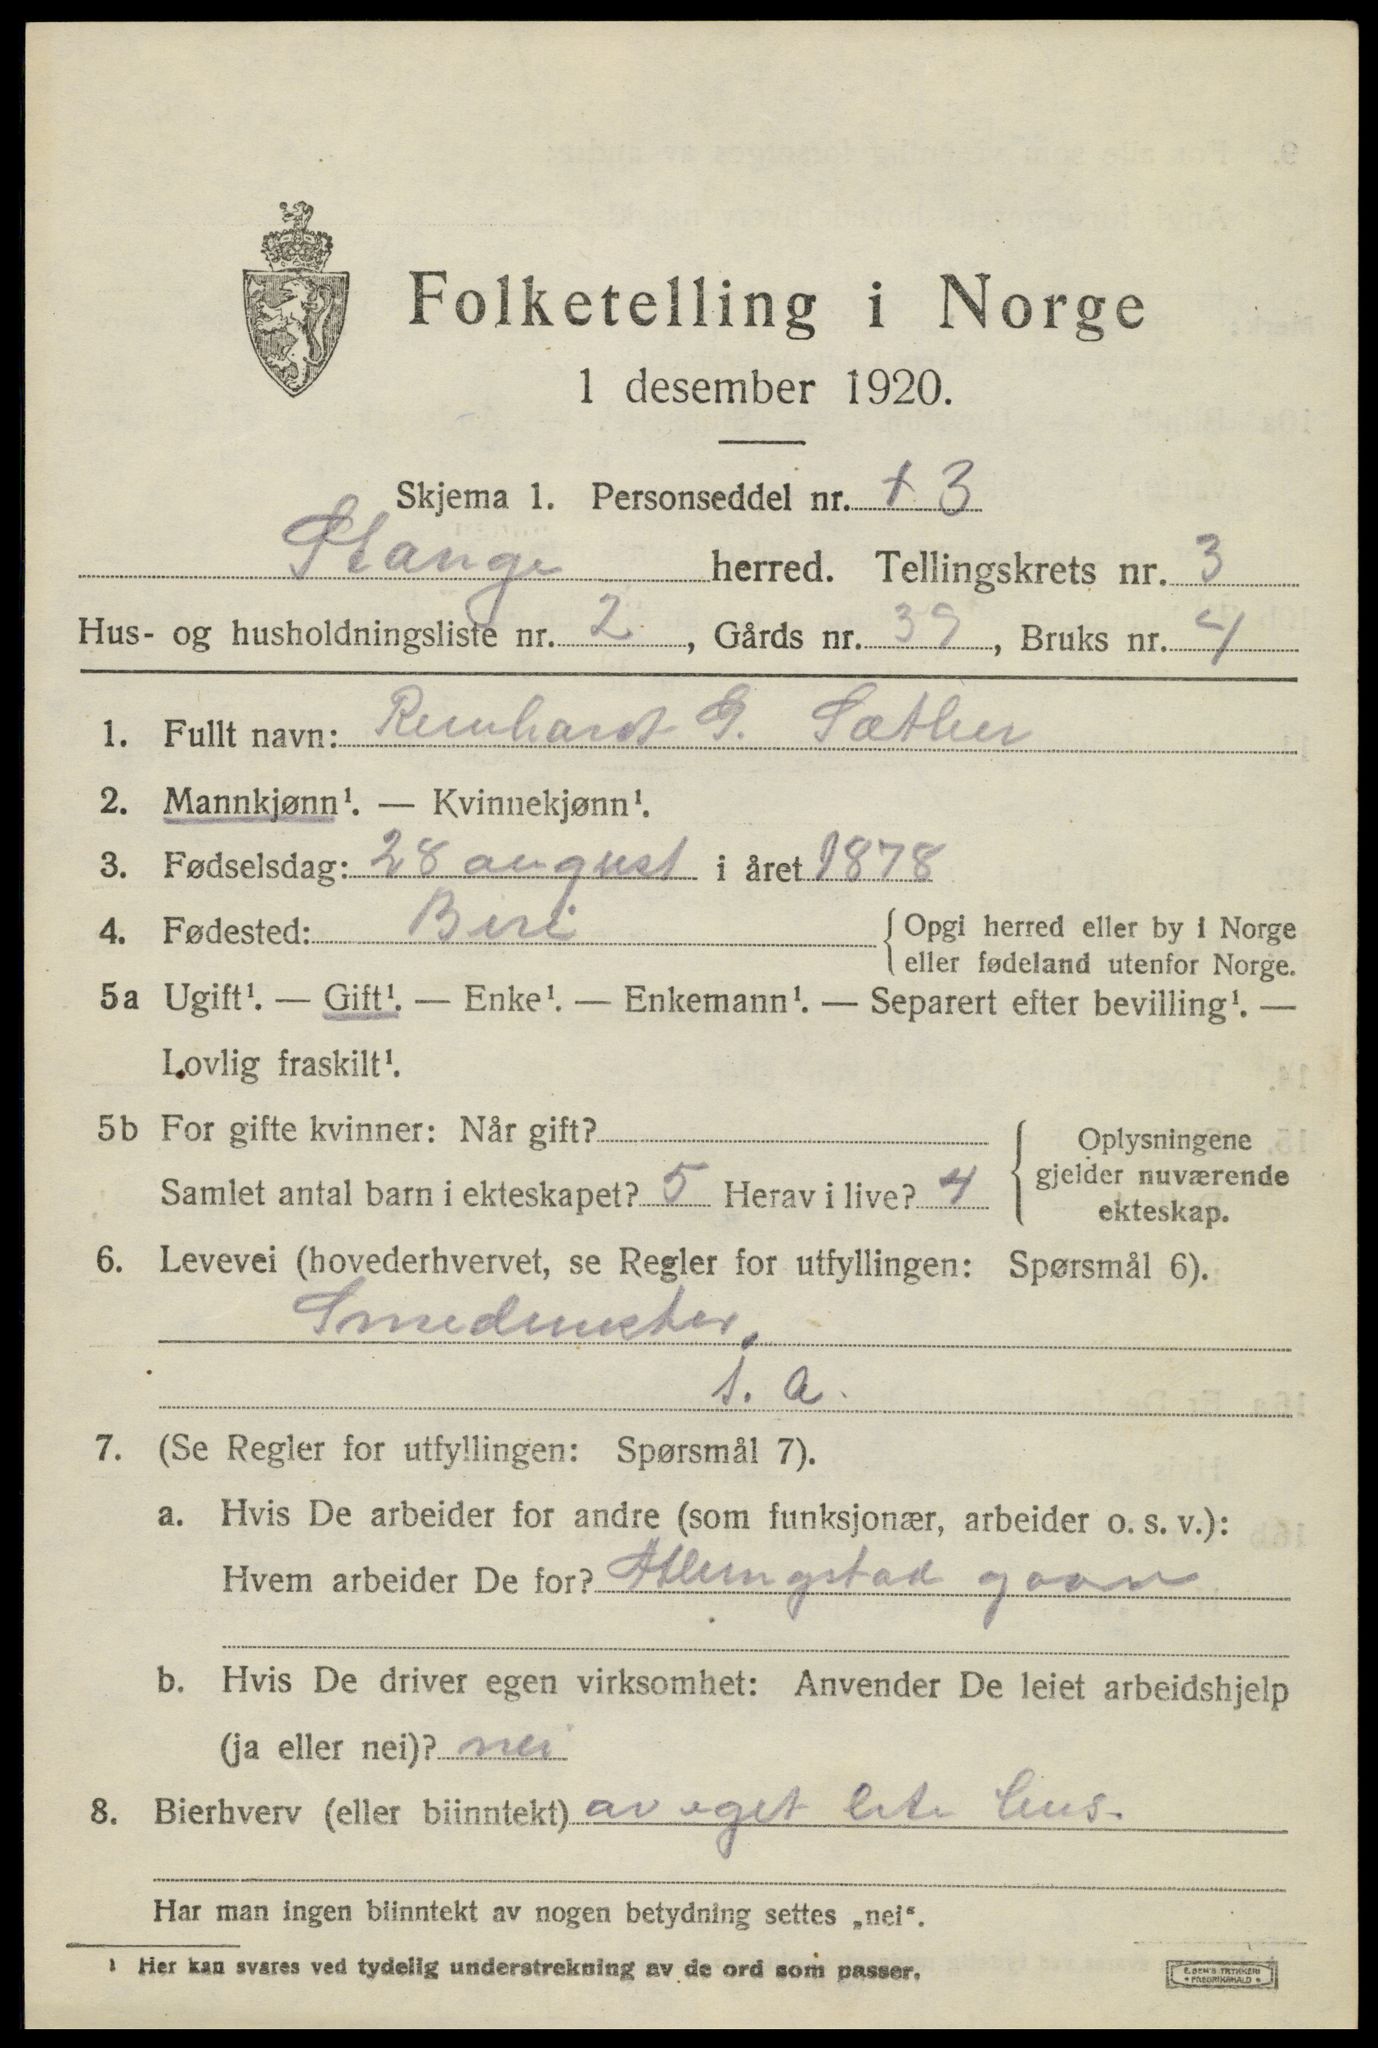 Folketelling i Norge
1 desember 1920.
Skjema 1. Personseddel nr. 3
Stange herred. Tellingskrets nr. 3
Hus- og husholdningsliste nr. 2, Gårds nr. 39, Bruks nr. 4
1. Fullt navn: Reinhardt G. Sæther
2. Mannkjønn¹. — Kvinnekjønn¹.
3. Fødselsdag: 28 august i året 1878
4. Fødested: Biri { Opgi herred eller by i Norge
eller fødeland utenfor Norge.
5a Ugift¹. — Gift¹. — Enke¹. — Enkemann¹. — Separert efter bevilling¹. —
Lovlig fraskilt¹.
5b For gifte kvinner: Når gift?
Samlet antal barn i ekteskapet? 5 Herav i live? 4
{ Oplysningene
gjelder nuværende
ekteskap.
6. Levevei (hovederhvervet, se Regler for utfyllingen: Spørsmål 6).
Smedmester.
s. a.
7. (Se Regler for utfyllingen: Spørsmål 7).
a. Hvis De arbeider for andre (som funksjonær, arbeider o. s. v.):
Hvem arbeider De for? Atlungstad gaard
b. Hvis De driver egen virksomhet: Anvender De leiet arbeidshjelp
(ja eller nei)? nei
8. Bierhverv (eller biinntekt) av eget lite hus.
Har man ingen biinntekt av nogen betydning settes „nei“.
¹ Her kan svares ved tydelig understrekning av de ord som passer.
E. SEM'S TRYKKERI
FREDRIKSHALD